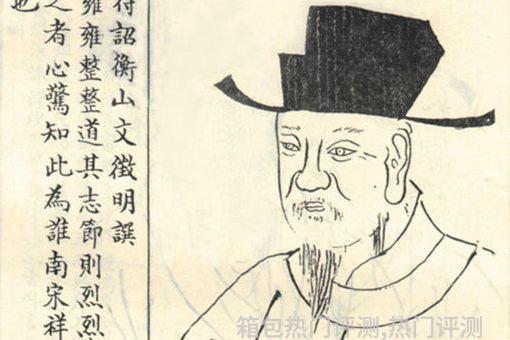 待詔衡山文徵明譔
雍雍整整道其志節則烈烈
之者心驚知此為誰南宋祥
也
箱包热门评测,热门评测